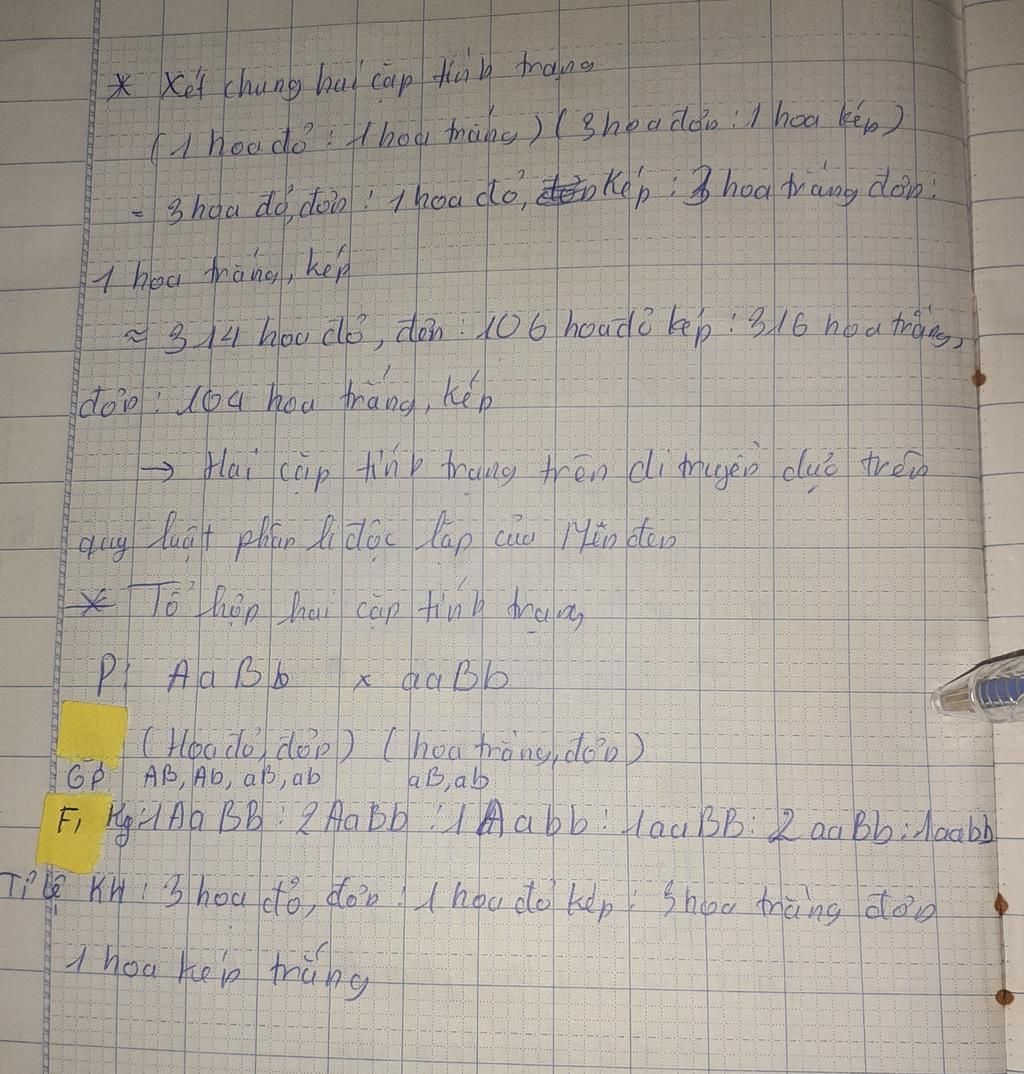 * Xét chung hai cặp tính trạng
(1 hoa đỏ : 1 hoa trắng) (3 hoa đơn : 1 hoa kép)
= 3 hoa đỏ, đơn : 1 hoa đỏ, kép : 3 hoa trắng đơn :
1 hoa trắng, kép
≈ 314 hoa đỏ, đơn : 106 hoa đỏ kép : 316 hoa trắng,
đơn : 104 hoa trắng, kép
→ Hai cặp tính trạng trên di truyền dựa trên
quy luật phân li độc lập của Menđen
* Tổ hợp hai cặp tính trạng
P: AaBb x aaBb
(Hoa đỏ, đơn) (hoa trắng, đơn)
GP AB, Ab, aB, ab aB, ab
F1 Kg: 1AaBB : 2AaBb : 1Aabb : 1aaBB : 2aaBb : 1aabb
Tỉ lệ KH : 3 hoa đỏ, đơn : 1 hoa đỏ kép : 3 hoa trắng đơn
1 hoa kép trắng